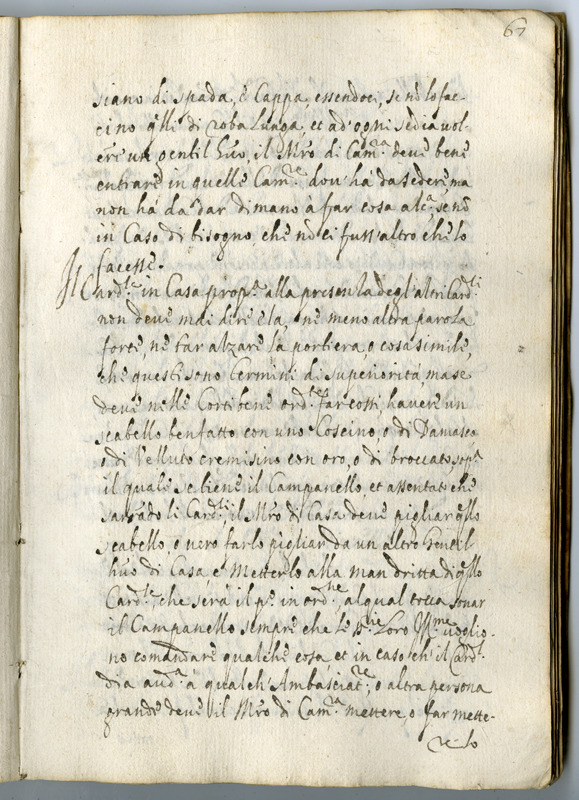 67
siano di spada, è Cappa, essendoci, se nõ lo fac-
cino qlli di roba lunga, et ad' ogni sedia vol-
un gentil huo, il Mro di Cam.a deve bene
entrare in quelle Cam.e dou' há da seder, ma
non há da dar di mano à far cosa alc.a se nõ
in Caso di bisogno che nõ ci fuss' altro che lo
facesse.
Il Card.le in Casa prop.a alla presenza degl' altri Card.li
non deve mai dire ela, ne meno altra parola
forte, ne far alzare la portiera, o cosa simile,
che questi sono termini di superiorità, ma se
deve nelle Corti bene ord.te far cosi, havere un
scabello ben fatto con uno Coscino, o di Damasco
o di Velluto cremisino con oro, o di broccato sop.a
il quale se tiene il Campanello, et assentati che
sarãdo li Card.li, il Mro di Casa deve pigliar qllo
scabello, o vero farlo pigliar da un altro Gentil
huõ di Casa, e' Metterlo alla man dritta di qllo
Card.le che serà il p.o in ord.ne, al qual tocca sonar
il Campanello sempre che le Loro Ill.me voglio-
no comandare qualche cosa, et in caso ch' il Card.l
dia aud.a à qualch' Ambasciat.e, o altra persona
grande deve il Mro di Cam.a mettere, o far mette-
re lo